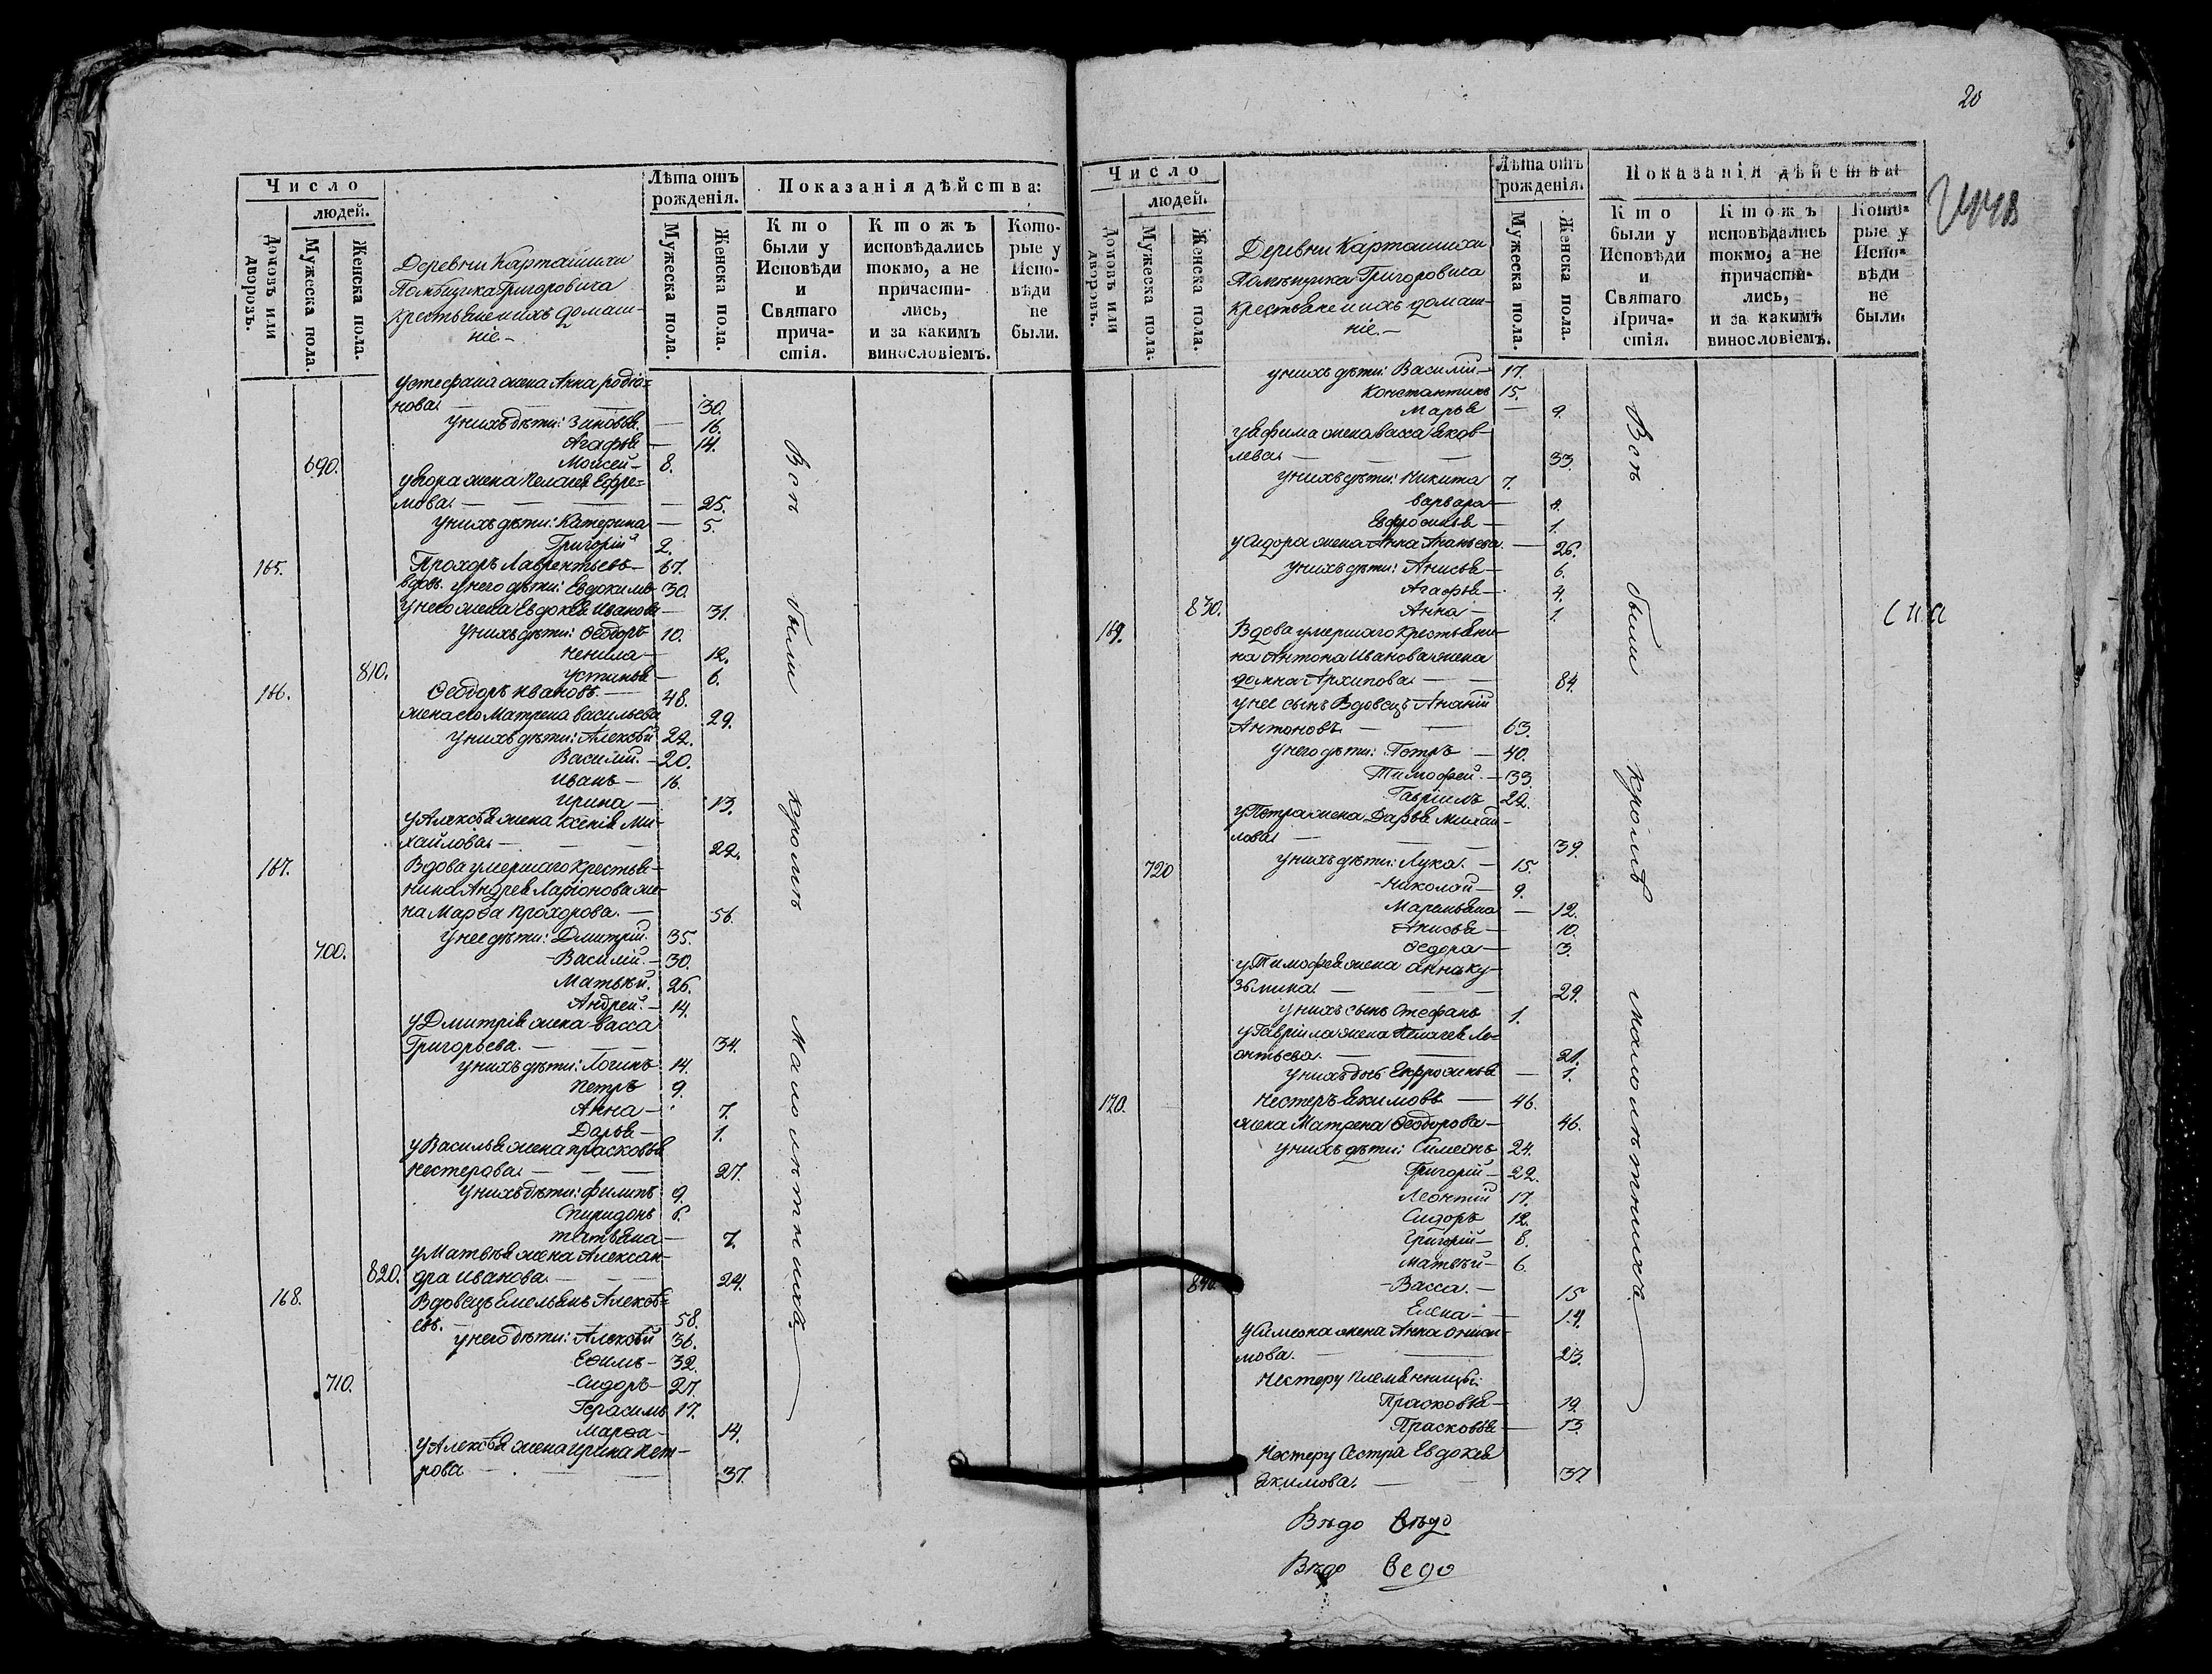 20
Число
людей.
Домовъ или дворовъ.
Мужеска пола.
Женска пола.
Деревни Карташихи
Помѣщика Григоровича
крестьяне и ихъ домаш-
ніе.-
Лѣта отъ рожденія.
Мужеска пола.
Женска пола.
Показанія дѣйства:
Кто были у Исповѣди и Святаго прича-стія.
Ктожъ исповѣдались токмо, а не причасти-лись, и за какимъ винословіемъ.
Кото-рые у Испо-вѣди не были.
у Стефана жена Анна родіо=
нова. — 30.
у нихъ дѣти: Зиновья — 16.
Агафья — 14.
690. Моисей — 8.
у Егора жена Пелагея Ефре=
мова. — 25.
у нихъ дѣти: Катерина — 5.
Григорій 2.
165. Прохоръ Лаврентьевъ — 67.
вдовъ. у него дѣти: Евдокимъ 30.
у него жена Евдокея Иванова — 31.
у нихъ дѣти: Ѳеодоръ 10.
Ненила — 12.
810. Устинья — 6.
166. Ѳеодоръ Ивановъ. — 48.
жена его Матрена васильева 29.
у нихъ дѣти: Алексѣй 22.
Василій. — 20.
Иванъ — 16.
Ирина — 13.
у Алексѣя жена Ксенія Ми-
хайлова. — 22.
167. Вдова умершаго крестья-
нина Андрея Ларіонова же-
на Марѳа Прохорова. — 56.
у нее дѣти: Дмитрій. 35.
700. Василій. — 30.
Матвѣй. 26.
Андрей. — 14.
у Дмитрія жена васса
Григорьева. — 34.
у нихъ дѣти: Логинъ 14.
Петръ 9.
Анна — 7.
Дарья — 1.
у Василья жена прасковья
Нестерова. — 27.
у нихъ дѣти: филипъ 9.
Спиридонъ 6.
татьяна — 7.
у Матвѣя жена Алексан-
820. дра Иванова. — 24.
168. Вдовецъ Емельянъ Алексѣ=
евъ. — 58.
у него дѣти: Алексѣй 36.
Ефимъ — 32.
710. Сидоръ — 27.
Герасимъ 17.
Марѳа — 14.
у Алексѣя жена Ирина Пет-
рова — 37.
Всѣ были кромѣ Малолѣтнихъ
Число
людей.
Домовъ или дворовъ.
Мужеска пола.
Женска пола.
Деревни Карташихи
Помѣщика Григоровича
крестьяне и ихъ домаш-
ніе.-
Лѣта отъ рожденія.
Мужеска пола.
Женска пола.
Показанія дѣйства:
Кто были у Исповѣди и Святаго Прича-стія.
Ктожъ исповѣдались токмо, а не причасти-лись, и за какимъ винословіемъ.
Кото-рые у Испо-вѣди не были.
у нихъ дѣти: Василій — 17.
Константинъ 15.
Марья — 9.
у Ефима жена васса Яков-
лева. — 33.
у нихъ дѣти: Никита 7.
варвара — 4.
Евфросинья — 1.
у Сидора жена Анна Ананьева. — 26.
у нихъ дѣти: Анисья — 6.
Агафья — 4.
830. Анна — 1.
169. Вдова умершаго крестьяни-
на Антона Иванова жена
домна Архипова. — 84.
у нее сынъ Вдовецъ Ананій
Антоновъ. — 63.
у него дѣти: Петръ — 40.
Тимофей. — 33.
Гавріилъ 22.
у Петра жена Дарья михай-
лова. — 39.
720 у нихъ дѣти: Лука. — 15.
Николай — 9.
Маремьяна — 12.
Анисья — 10.
Ѳедора — 3.
у Тимофея жена анна ку-
зьмина. — 29.
у нихъ сынъ Стефанъ 1.
у Гавріила жена Пелагея Ле-
онтьева. — 21.
у нихъ дочь Евфросинья — 1.
170. Нестеръ Якимовъ — 46.
жена Матрена Ѳеодорова — 46.
у нихъ дѣти: Симеонъ 24.
Григорій — 22.
Леонтій 17.
Сидоръ 12.
Григорій — 8.
Матвѣй — 6.
840. Васса. — 15
Елена — 14.
у Симеона жена Анна
мова. — 23.
Нестеру племянницы:
Прасковья — 19.
Прасковья — 13.
Нестеру Сестра Евдокея
Якимова. — 37
Всѣ были кромѣ малолѣтнихъ
Вѣдо вѣдо
Вѣдо ведо